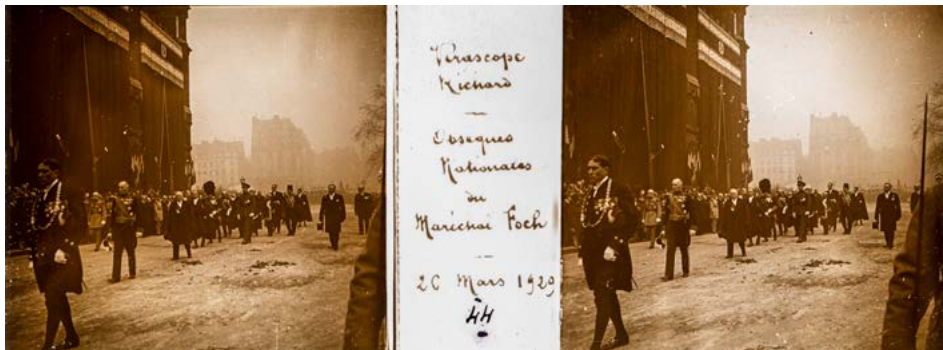 Verascope
Richard
—
Obseques
Nationales
du
Maréchal Foch
—
26 Mars 1929
44